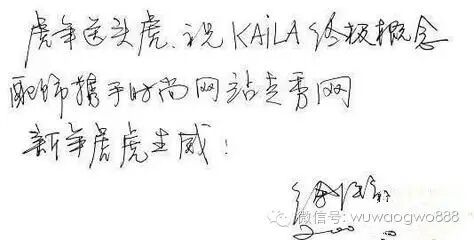 虎年送头虎.祝KAiLA终极概念
配饰携手时尚网站走秀网
新年虎虎生威!
微信号: wuwaogwo888